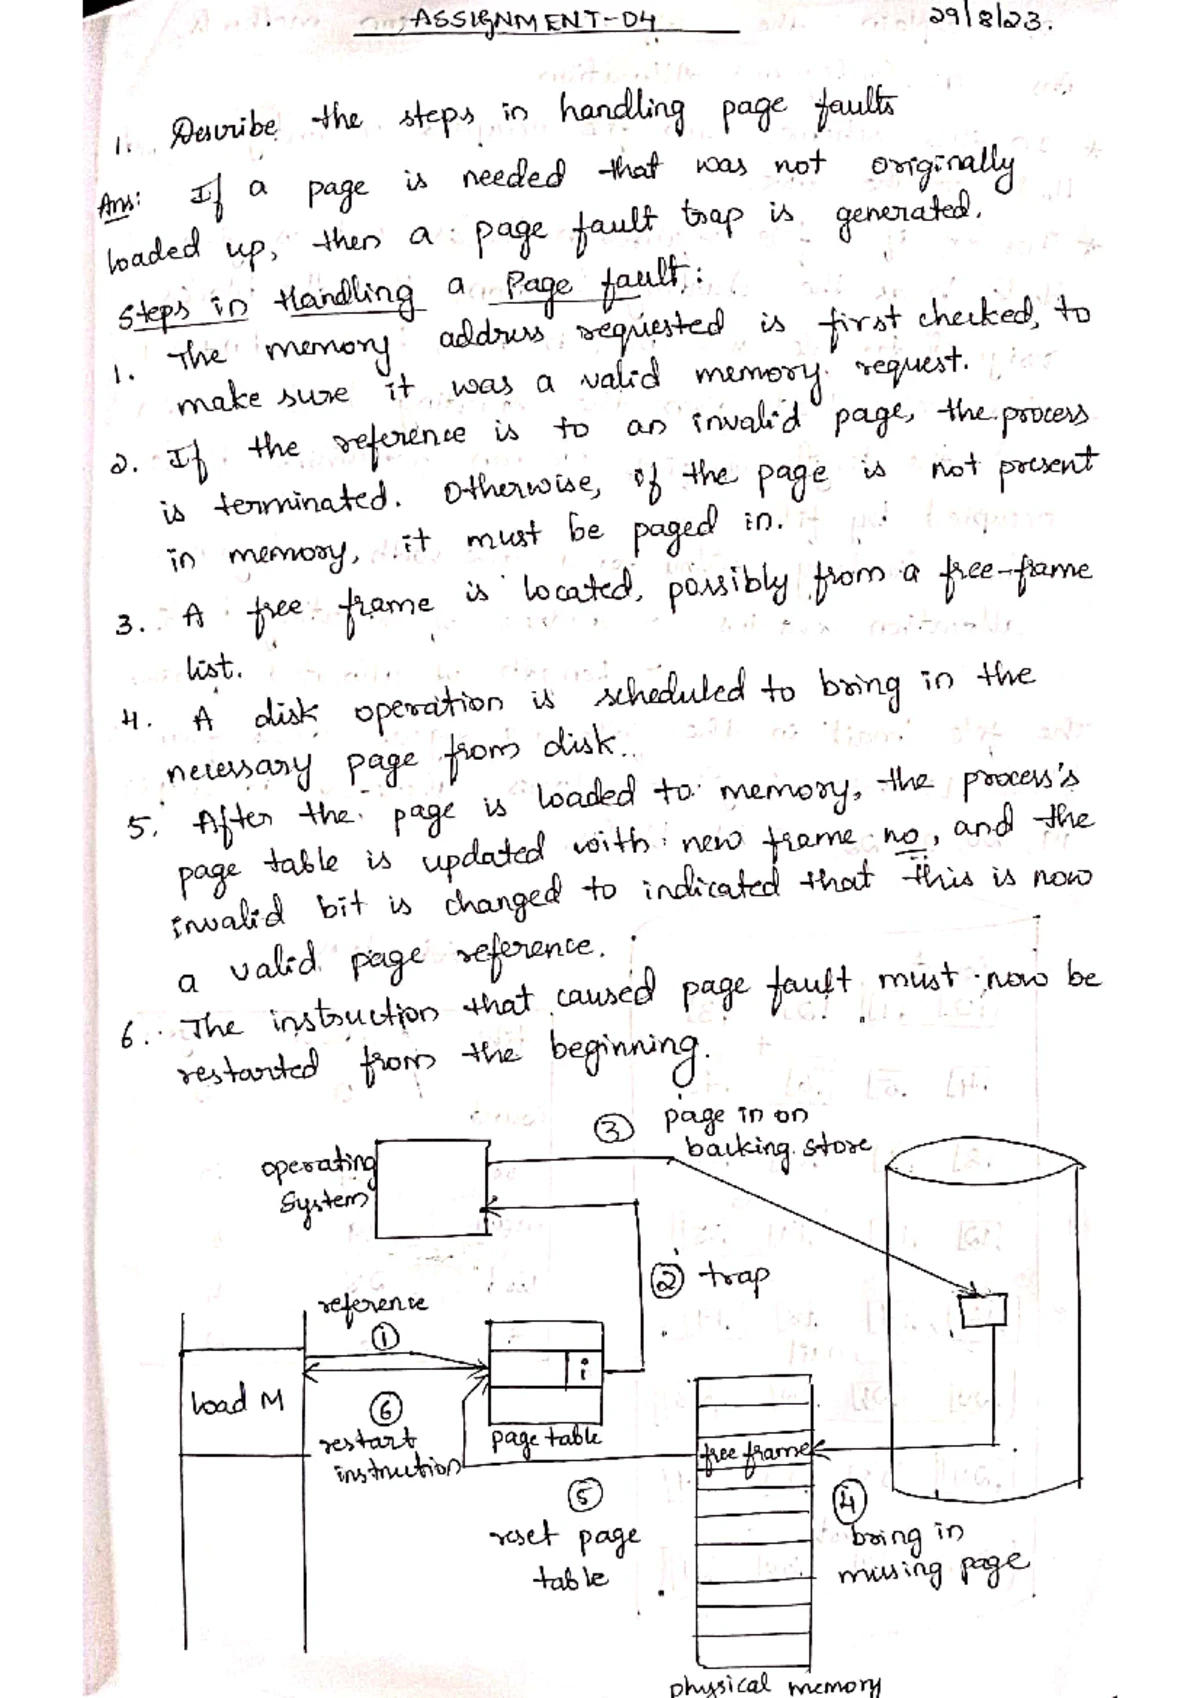 ASSIGNMENT-04
29/8/23.
1. Describe the steps in handling page faults
Ans: If a page is needed that was not originally
loaded up, then a page fault trap is generated.
Steps in Handling a Page fault:
1. The memory address requested is first checked, to
make sure it was a valid memory request.
2. If the reference is to an invalid page, the process
is terminated. Otherwise, if the page is not present
in memory, it must be paged in.
3. A free frame is located, possibly from a free-frame
list.
4. A disk operation is scheduled to bring in the
necessary page from disk.
5. After the page is loaded to memory, the process's
page table is updated with new frame no, and the
invalid bit is changed to indicated that this is now
a valid page reference.
6. The instruction that caused page fault must now be
restarted from the beginning.
③ page in on
backing store
operating
System
② trap
reference
①
i
load M
⑥
restart
instruction
page table
free frame
⑤
reset page
table
④
bring in
missing page
physical memory